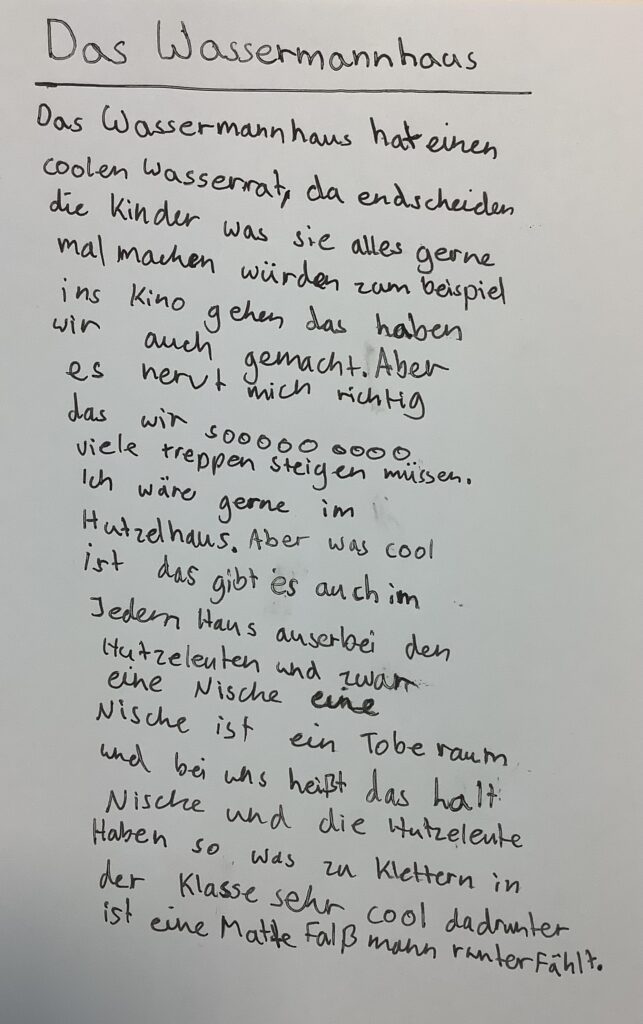 Das Wassermannhaus
Das Wassermannhaus hat einen
coolen Wasserrat, da endscheiden
die Kinder was sie alles gerne
mal machen würden zum beispiel
ins Kino gehen das haben
wir auch gemacht. Aber
es nervt mich richtig
das wir sooooo oooo
viele treppen steigen müssen.
Ich wäre gerne im
Hutzelhaus. Aber was cool
ist das gibt es auch im
Jedem Haus auserbei den
Hutzeleuten und zwar
eine Nische eine
Nische ist ein Tobe raum
und bei uns heißt das halt
Nische und die Hutzeleute
Haben so was zu Klettern in
der Klasse sehr cool dadrunter
ist eine Matte Falß mann runter Fählt.